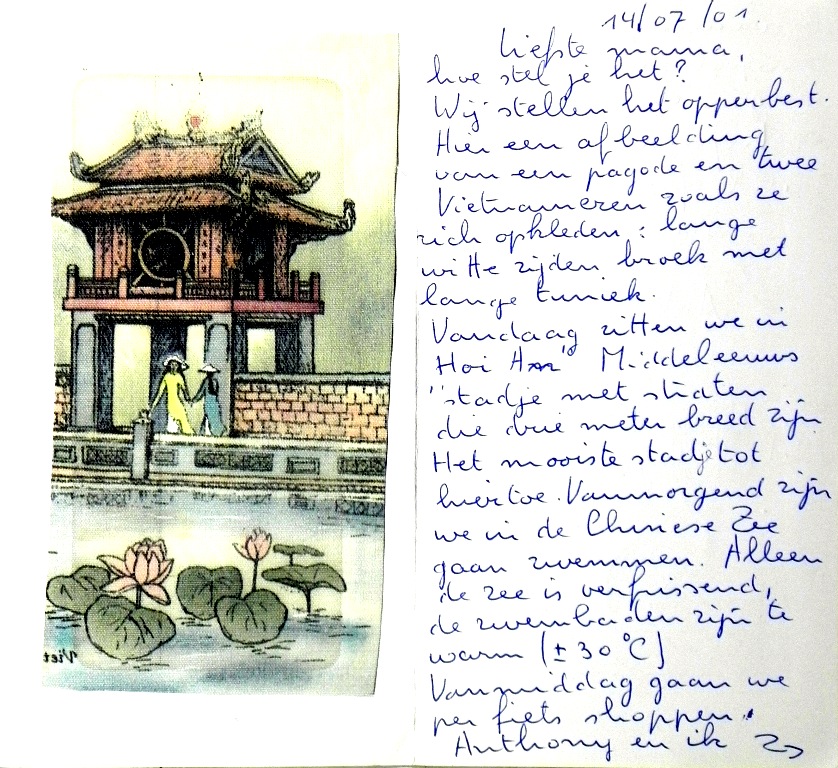 14/07/01.
Liefste mama,
hoe stel je het?
Wij stellen het opperbest.
Hier een afbeelding
van een pagode en twee
Vietnameren zoals ze
zich opkleden : lange
witte zijden broek met
lange tuniek.
Vandaag zitten we in
Hoi An Middeleeuws
"stadje met straten
die drie meter breed zijn
Het mooiste stadje tot
hiertoe. Vanmorgend zijn
we in de Chinese Zee
gaan zwemmen. Alleen
de zee is verfrissend,
de zwembaden zijn te
warm (±30°C)
Vanmiddag gaan we
per fiets shoppen.
Anthony en ik
Viet